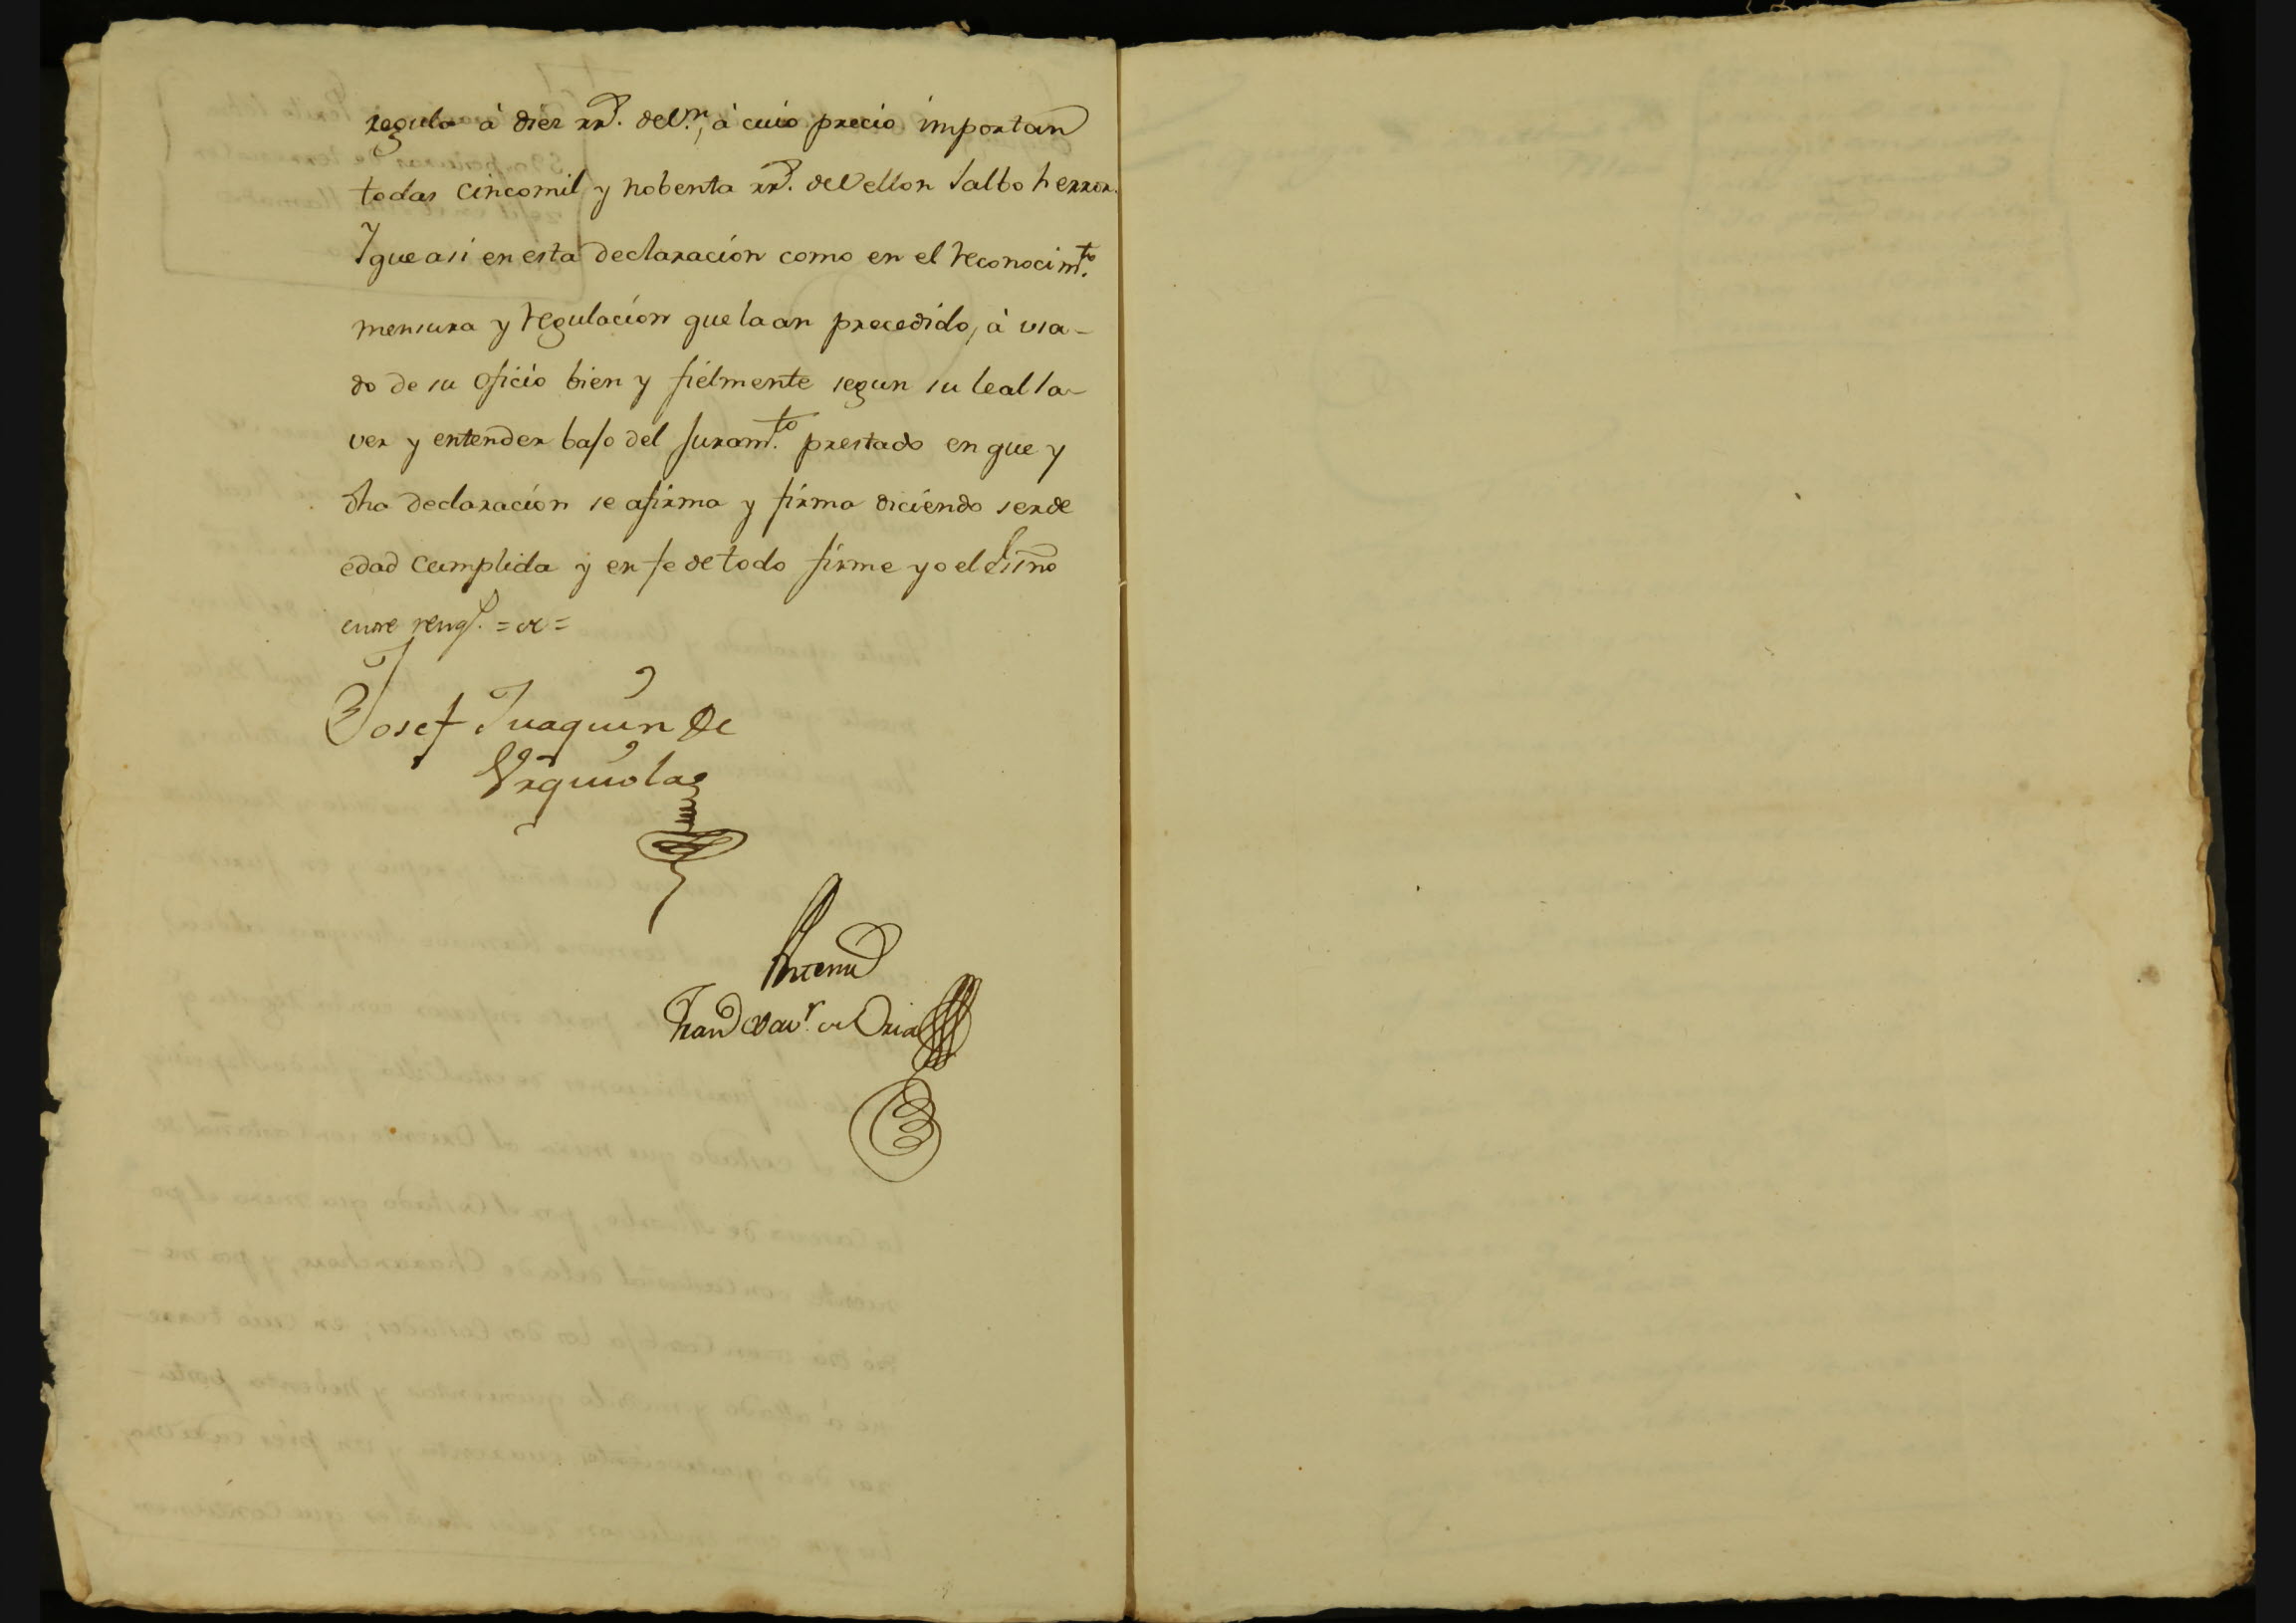 regula à diez rr.^s de v.^n, à cuio precio importan
todas cincomil y nobenta rr.^s de Vellon Salbo herror.
Y que asi en esta declaración como en el reconocim.^to
mensura y regulación que la an precedido, à usa-
do de su oficio bien y fielmente segun su leal sa-
ver y entender bajo del Juram.^to prestado en que y
dha declaración se afirma y firma diciendo ser de
edad cumplida y en fe de todo firme yo el Essno
entre reng.^s = de =
Josef Juaquin de
Vrquiola
Antemi
Fran^co Xav.^r de Oria